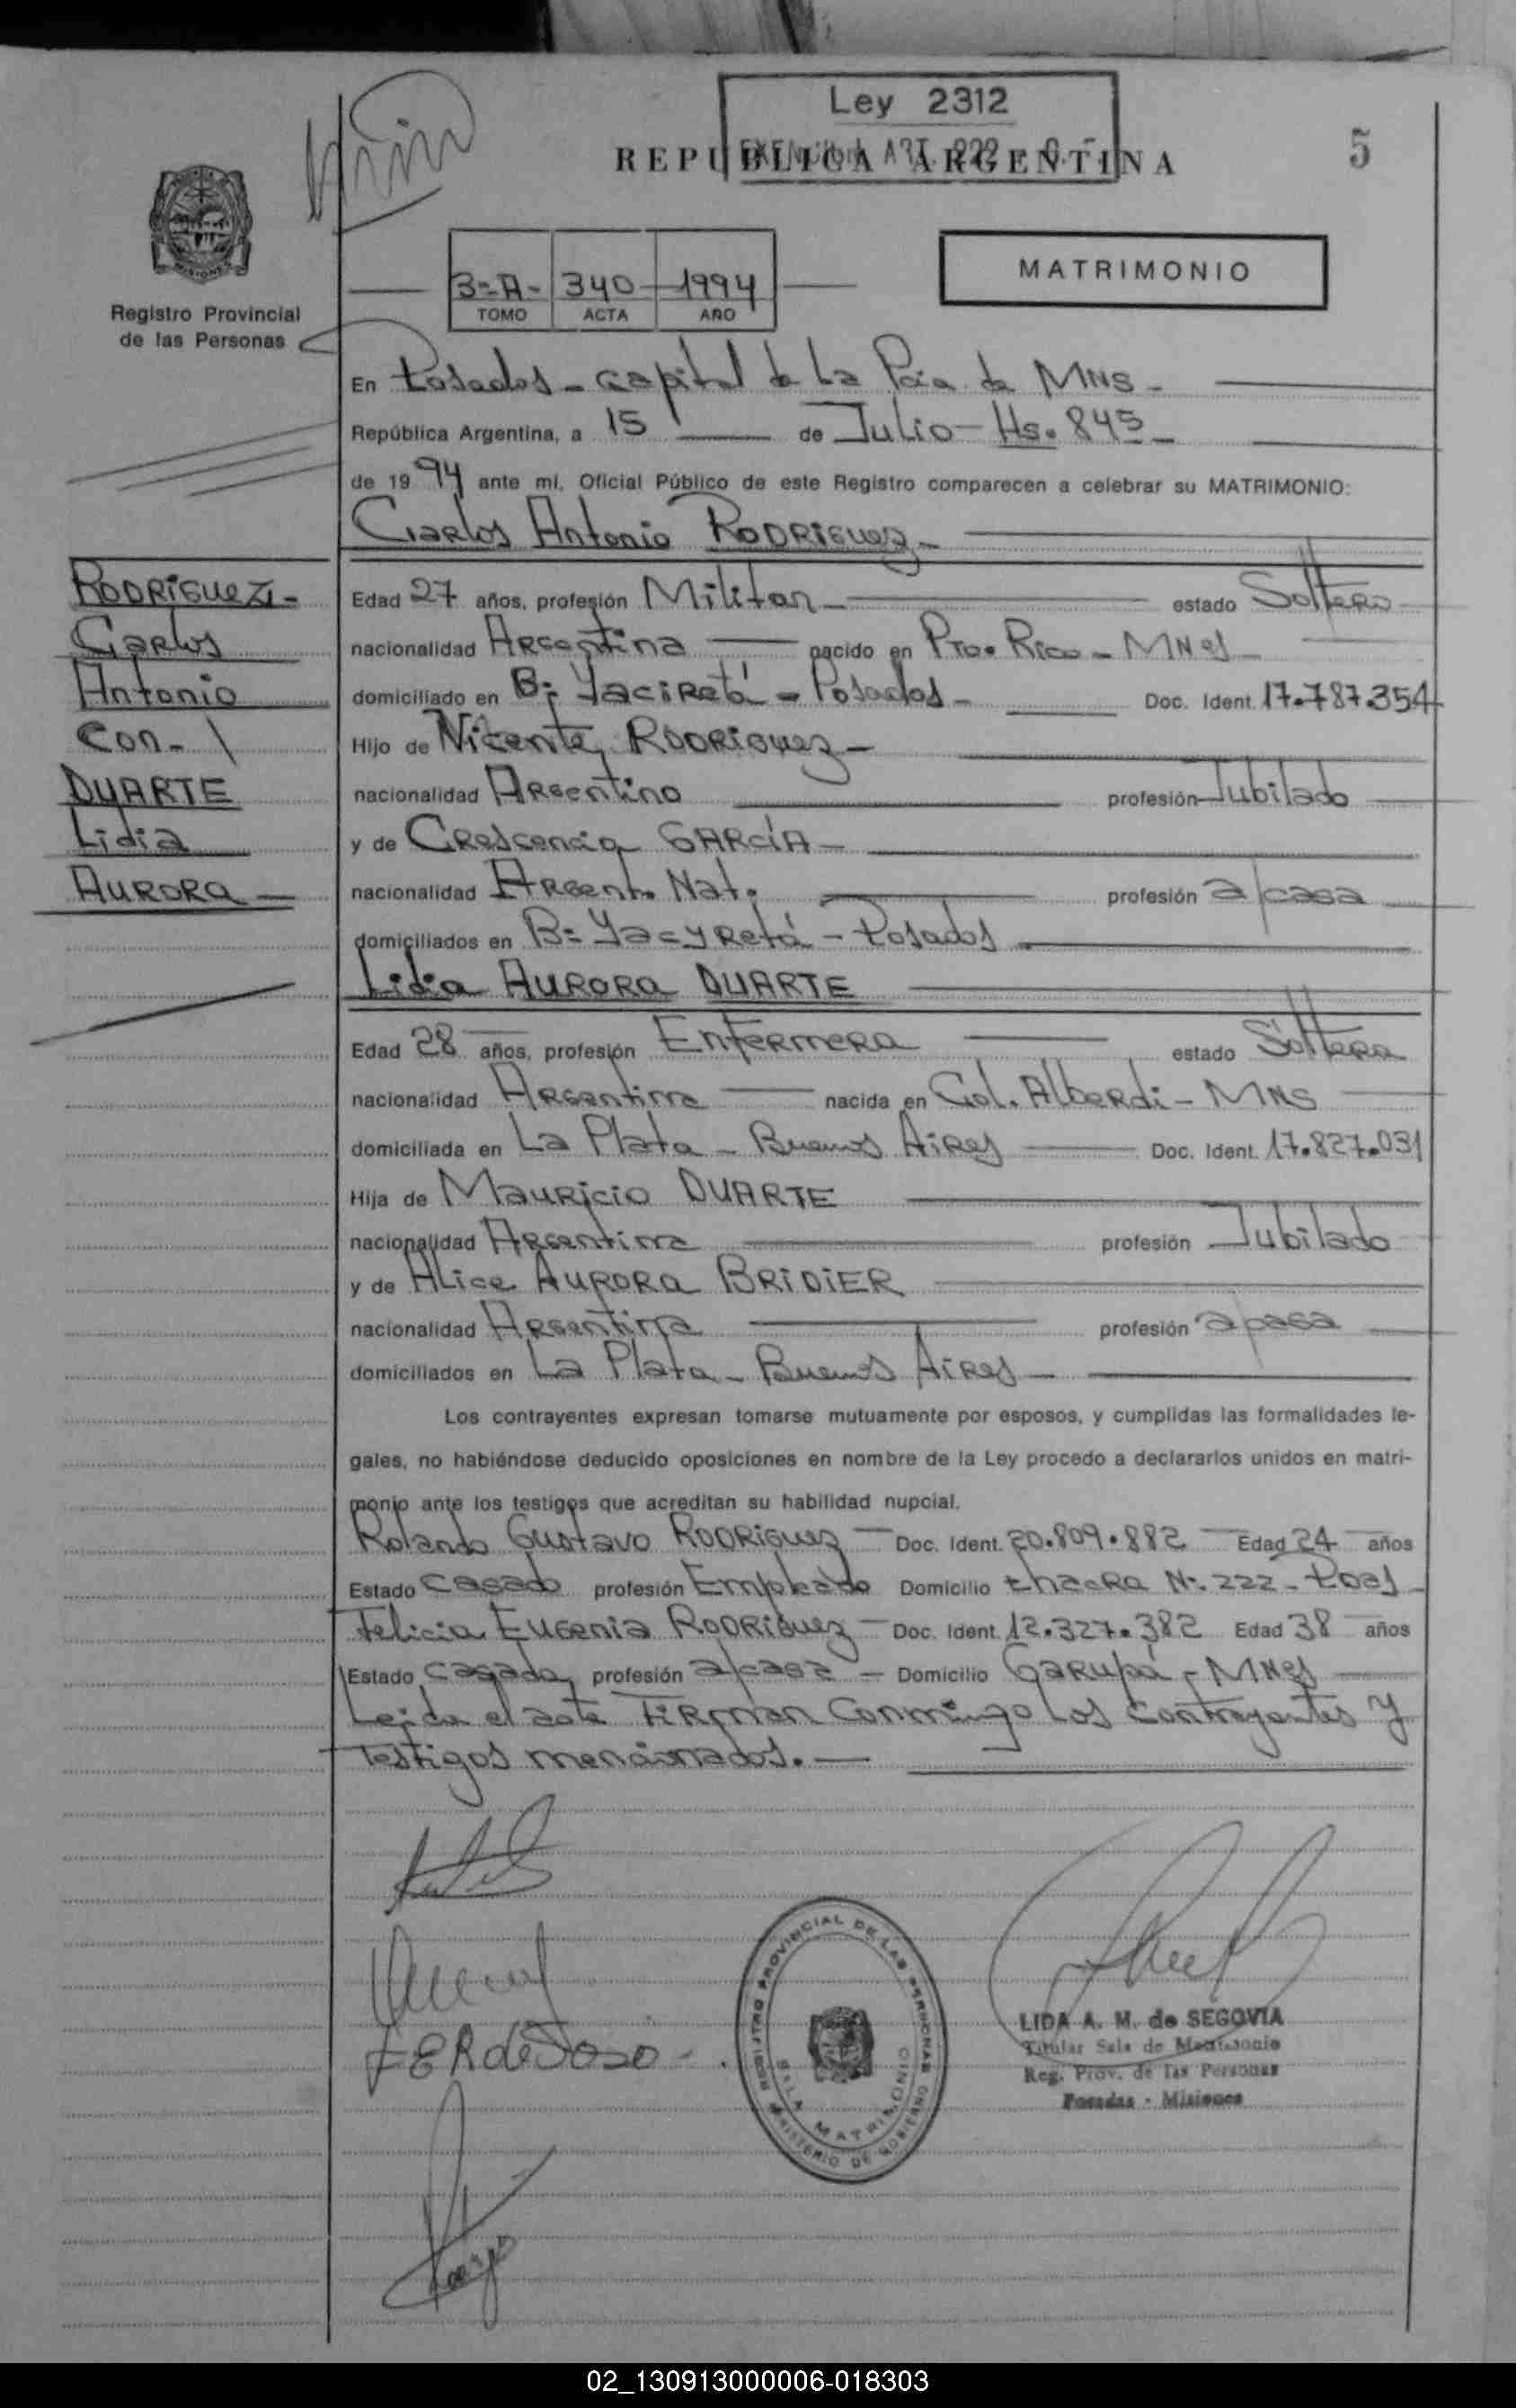 Ley 2312
REPUBLICA ARGENTINA
5
MATRIMONIO
3-A- 340 1994
TOMO ACTA AÑO
Registro Provincial
de las Personas
En Posadas - Capital de La Pcia de MNS -
República Argentina, a 15 de Julio - Hs. 845 -
de 1994 ante mí, Oficial Público de este Registro comparecen a celebrar su MATRIMONIO:
Carlos Antonio RODRIGUEZ -
RODRIGUEZ -
Carlos
Antonio
Con -
DUARTE
Lidia
AURORA
Edad 27 años, profesión Militar - estado Soltero
nacionalidad Argentina nacido en Pto. Rico - MNes
domiciliado en B: Yaciretá - Posadas - Doc. Ident. 17.787.354
Hijo de Vicente RODRIGUEZ -
nacionalidad Argentino profesión Jubilado
y de Crescencia GARCÍA -
nacionalidad Argent. Nat. profesión a/casa
domiciliados en B: Yacyretá - Posadas
Lidia AURORA DUARTE
Edad 28 años, profesión Enfermera estado Soltera
nacionalidad Argentina nacida en Col. Alberdi - MNS
domiciliada en La Plata - Buenos Aires Doc. Ident. 17.827.031
Hija de Mauricio DUARTE
nacionalidad Argentina profesión Jubilado
y de Alice AURORA BRIDIER
nacionalidad Argentina profesión a/casa
domiciliados en La Plata - Buenos Aires
Los contrayentes expresan tomarse mutuamente por esposos, y cumplidas las formalidades le-
gales, no habiéndose deducido oposiciones en nombre de la Ley procedo a declararlos unidos en matri-
monio ante los testigos que acreditan su habilidad nupcial.
Rolando Gustavo RODRIGUEZ - Doc. Ident. 20.809.882 Edad 24 años
Estado Casado profesión Empleado Domicilio Chacra N: 222 - Pdas
Felicia EUGENIA RODRIGUEZ - Doc. Ident. 12.327.382 Edad 38 años
Estado Casada profesión a/casa - Domicilio Garupá - MNes
Leída el acta FIRMAN Conmingo Los Contrayentes y
Testigos mencionados.
FERdeToso
REGISTRO PROVINCIAL DE LAS PERSONAS
SALA MATRIMONIO
MINISTERIO DE GOBIERNO
LIDA A. M. de SEGOVIA
Titular Sala de Matrimonio
Reg. Prov. de las Personas
Posadas - Misiones
02_130913000006-018303